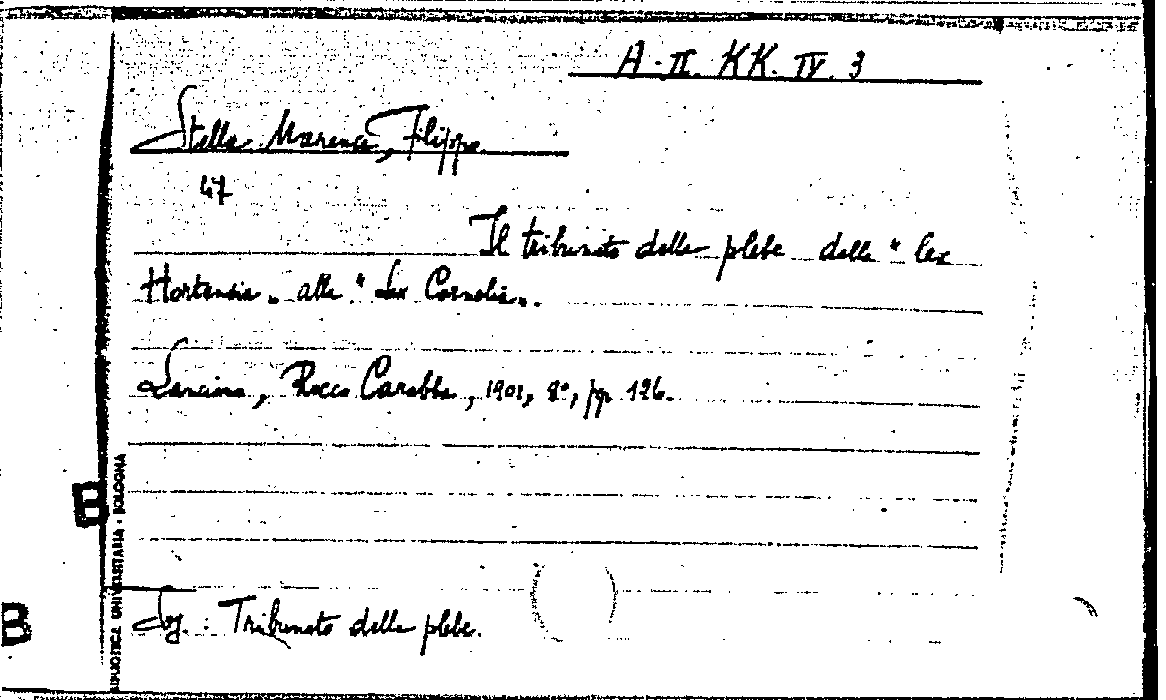 A. II. KK. IV. 3
Stella Maranca, Filippo
47
Il tribunato della plebe dalla " lex
Hortensia „ alla " Lex Cornelia „.
Lanciano, Rocco Carabba, 1901, 8°, pp. 126.
Sog.: Tribunato della plebe.
BIBLIOTECA UNIVERSITARIA - BOLOGNA
B
B